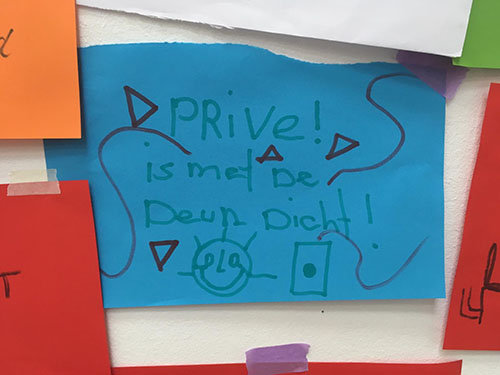 PRive!
is met De
Deur Dicht!